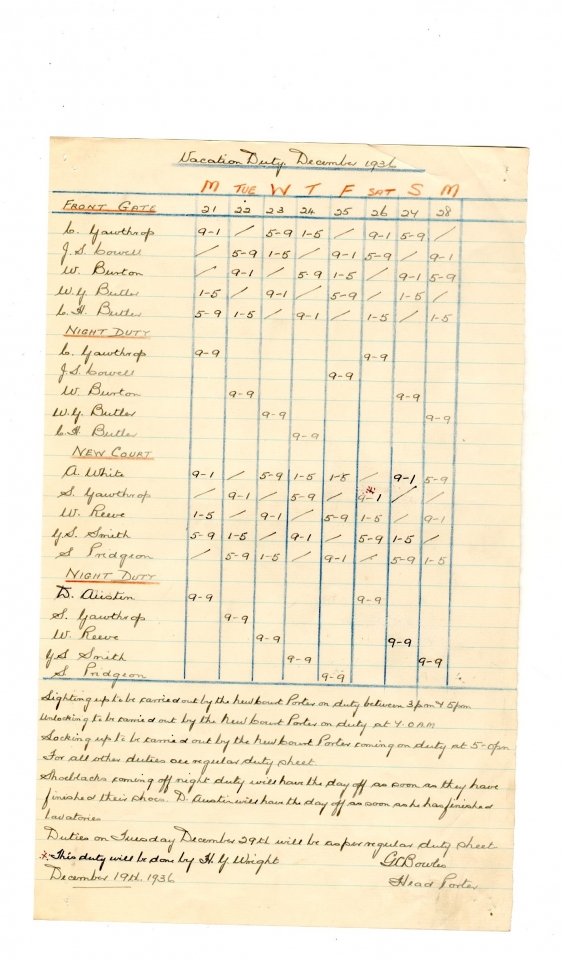 Vacation Duty, December 1936
M TUE W T F SAT S M
FRONT GATE 21 22 23 24 25 26 27 28
C. Gawthrop 9-1 / 5-9 1-5 / 9-1 5-9 /
J.S. Cowell / 5-9 1-5 / 9-1 5-9 / 9-1
W. Burton / 9-1 / 5-9 1-5 / 9-1 5-9
W.G. Butler 1-5 / 9-1 / 5-9 / 1-5 /
C.H. Butler 5-9 1-5 / 9-1 / 1-5 / 1-5
NIGHT DUTY
C. Gawthrop 9-9 9-9
J.S. Cowell 9-9
W. Burton 9-9 9-9
W.G. Butler 9-9 9-9
C.H. Butler 9-9
NEW COURT
A. White 9-1 / 5-9 1-5 1-5 / 9-1 5-9
S. Gawthrop / 9-1 / 5-9 / 9-1 / /
W. Reeve 1-5 / 9-1 / 5-9 1-5 / 9-1
G.S. Smith 5-9 1-5 / 9-1 / 5-9 1-5 /
S Pridgeon / 5-9 1-5 / 9-1 / 5-9 1-5
NIGHT DUTY
D. Austin 9-9 9-9
S. Gawthrop 9-9
W. Reeve 9-9 9-9
G.S Smith 9-9 9-9
S Pridgeon 9-9
Lighting up to be carried out by the New Court Porter on duty between 3pm & 5pm
Unlocking to be carried out by the New Court Porter on duty at 7.0 AM
Locking up to be carried out by the New Court Porter coming on duty at 5-0pm
For all other duties see regular duty sheet
Shoeblacks coming off night duty will have the day off as soon as they have
finished their shoes. D. Austin will have the day off as soon as he has finished
Lavatories
Duties on Tuesday December 29th will be as per regular duty sheet
* This duty will be done by H.G. Wright G.C Bowles
December 19th. 1936 Head Porter